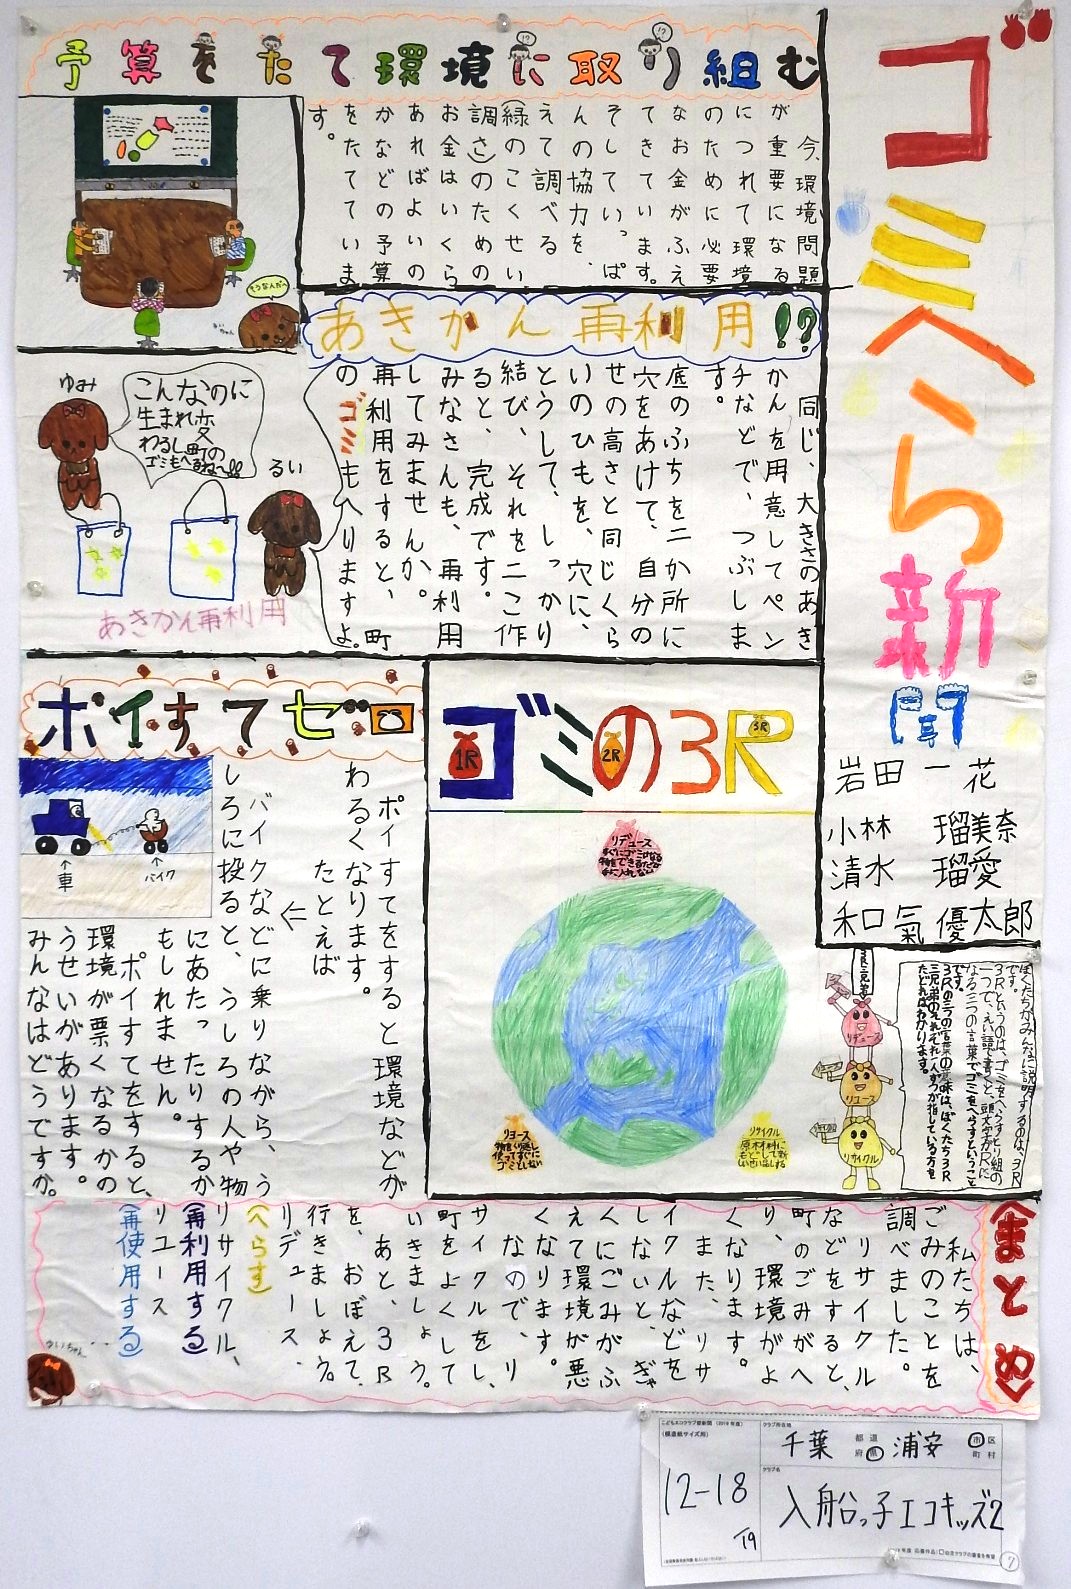 ゴミへら新聞
岩田 一花
小林 瑠美奈
清水 瑠愛
和氣 優太郎
予算をたて環境に取り組む
今、環境問題
が重要になる
につれて環境
のために必要
なお金がふえ
てきています。
そしていっぱ
んの協力を、
えて調べる
(緑のこくせい
調さ)のための
お金はいくら
あればよいの
かなどの予算
をたてていま
す。
そうなんだへ〜
るいちゃん
あきかん再利用!?
同じ、大きさのあき
かんを用意してペン
チなどで、つぶしま
す。
底のふちを二か所に
穴をあけて、自分の
せの高さと同じくら
いのひもを、穴に、
とうして、しっかり
結び、それを二こ作
ると、完成です。
みなさんも、再利用
してみませんか。
再利用をすると、町
のゴミもへりますよ。
ゆみ
こんなのに
生まれ変
わるし町の
ゴミもへるね〜!!
るい
あきかん再利用
ポイすてゼロ
ポイすてをすると環境などが
わるくなります。
たとえば
↓
バイクなどに乗りながら、う
しろに投ると、うしろの人や物
にあたったりするか
もしれません。
ポイすてをすると、
環境が悪くなるかの
うせいがあります。
みんなはどうですか。
↑
車
↑
バイク
ゴミの3R
1R
2R
3R
リデュース
すぐにゴミになる
物をできるだけ
手に入れない
リユース
物をくり返し
使ってすぐに
ゴミにしない
リサイクル
原材料に
もどして新
しい製品にする
3R三兄弟
リデュース
リユース
リサイクル
ぼくたちがみんなに説明するのは、3R
です。
3Rというのは、ゴミをへらすとり組の
一つで、えい語で書くと、頭文字がRに
なる三つの言葉でゴミをへらすということ
です。
3Rの三つの言葉の意味は、ぼくたち3R
三兄弟のそれぞれ一人ずつが指している方を
たどればわかります。
〈まとめ〉
私たちは、
ごみのことを
調べました。
リサイクル
などをすると、
町のごみがへ
り、環境がよ
くなります。
また、リサ
イクルなどを
しないと、ぎゃ
くにごみがふ
えて環境が悪
くなります。
なので、リ
サイクルをし、
町をよくして
いきましょう。
あと、3R
を、おぼえて、
行きましょう。
リデュース、
(へらす)
リサイクル、
(再利用する)
リユース
(再使用する)
るいちゃん
こどもエコクラブ壁新聞(2019年度)
(模造紙サイズ用)
12-18
19
クラブ所在地
千葉 都道府県 浦安 市区町村
クラブ名
入船っ子エコキッズ2
7